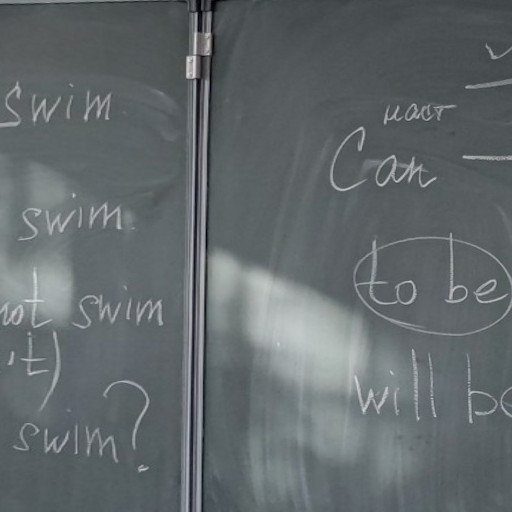 swim
swim.
not swim
't)
swim?
наст
Can
to be
will be